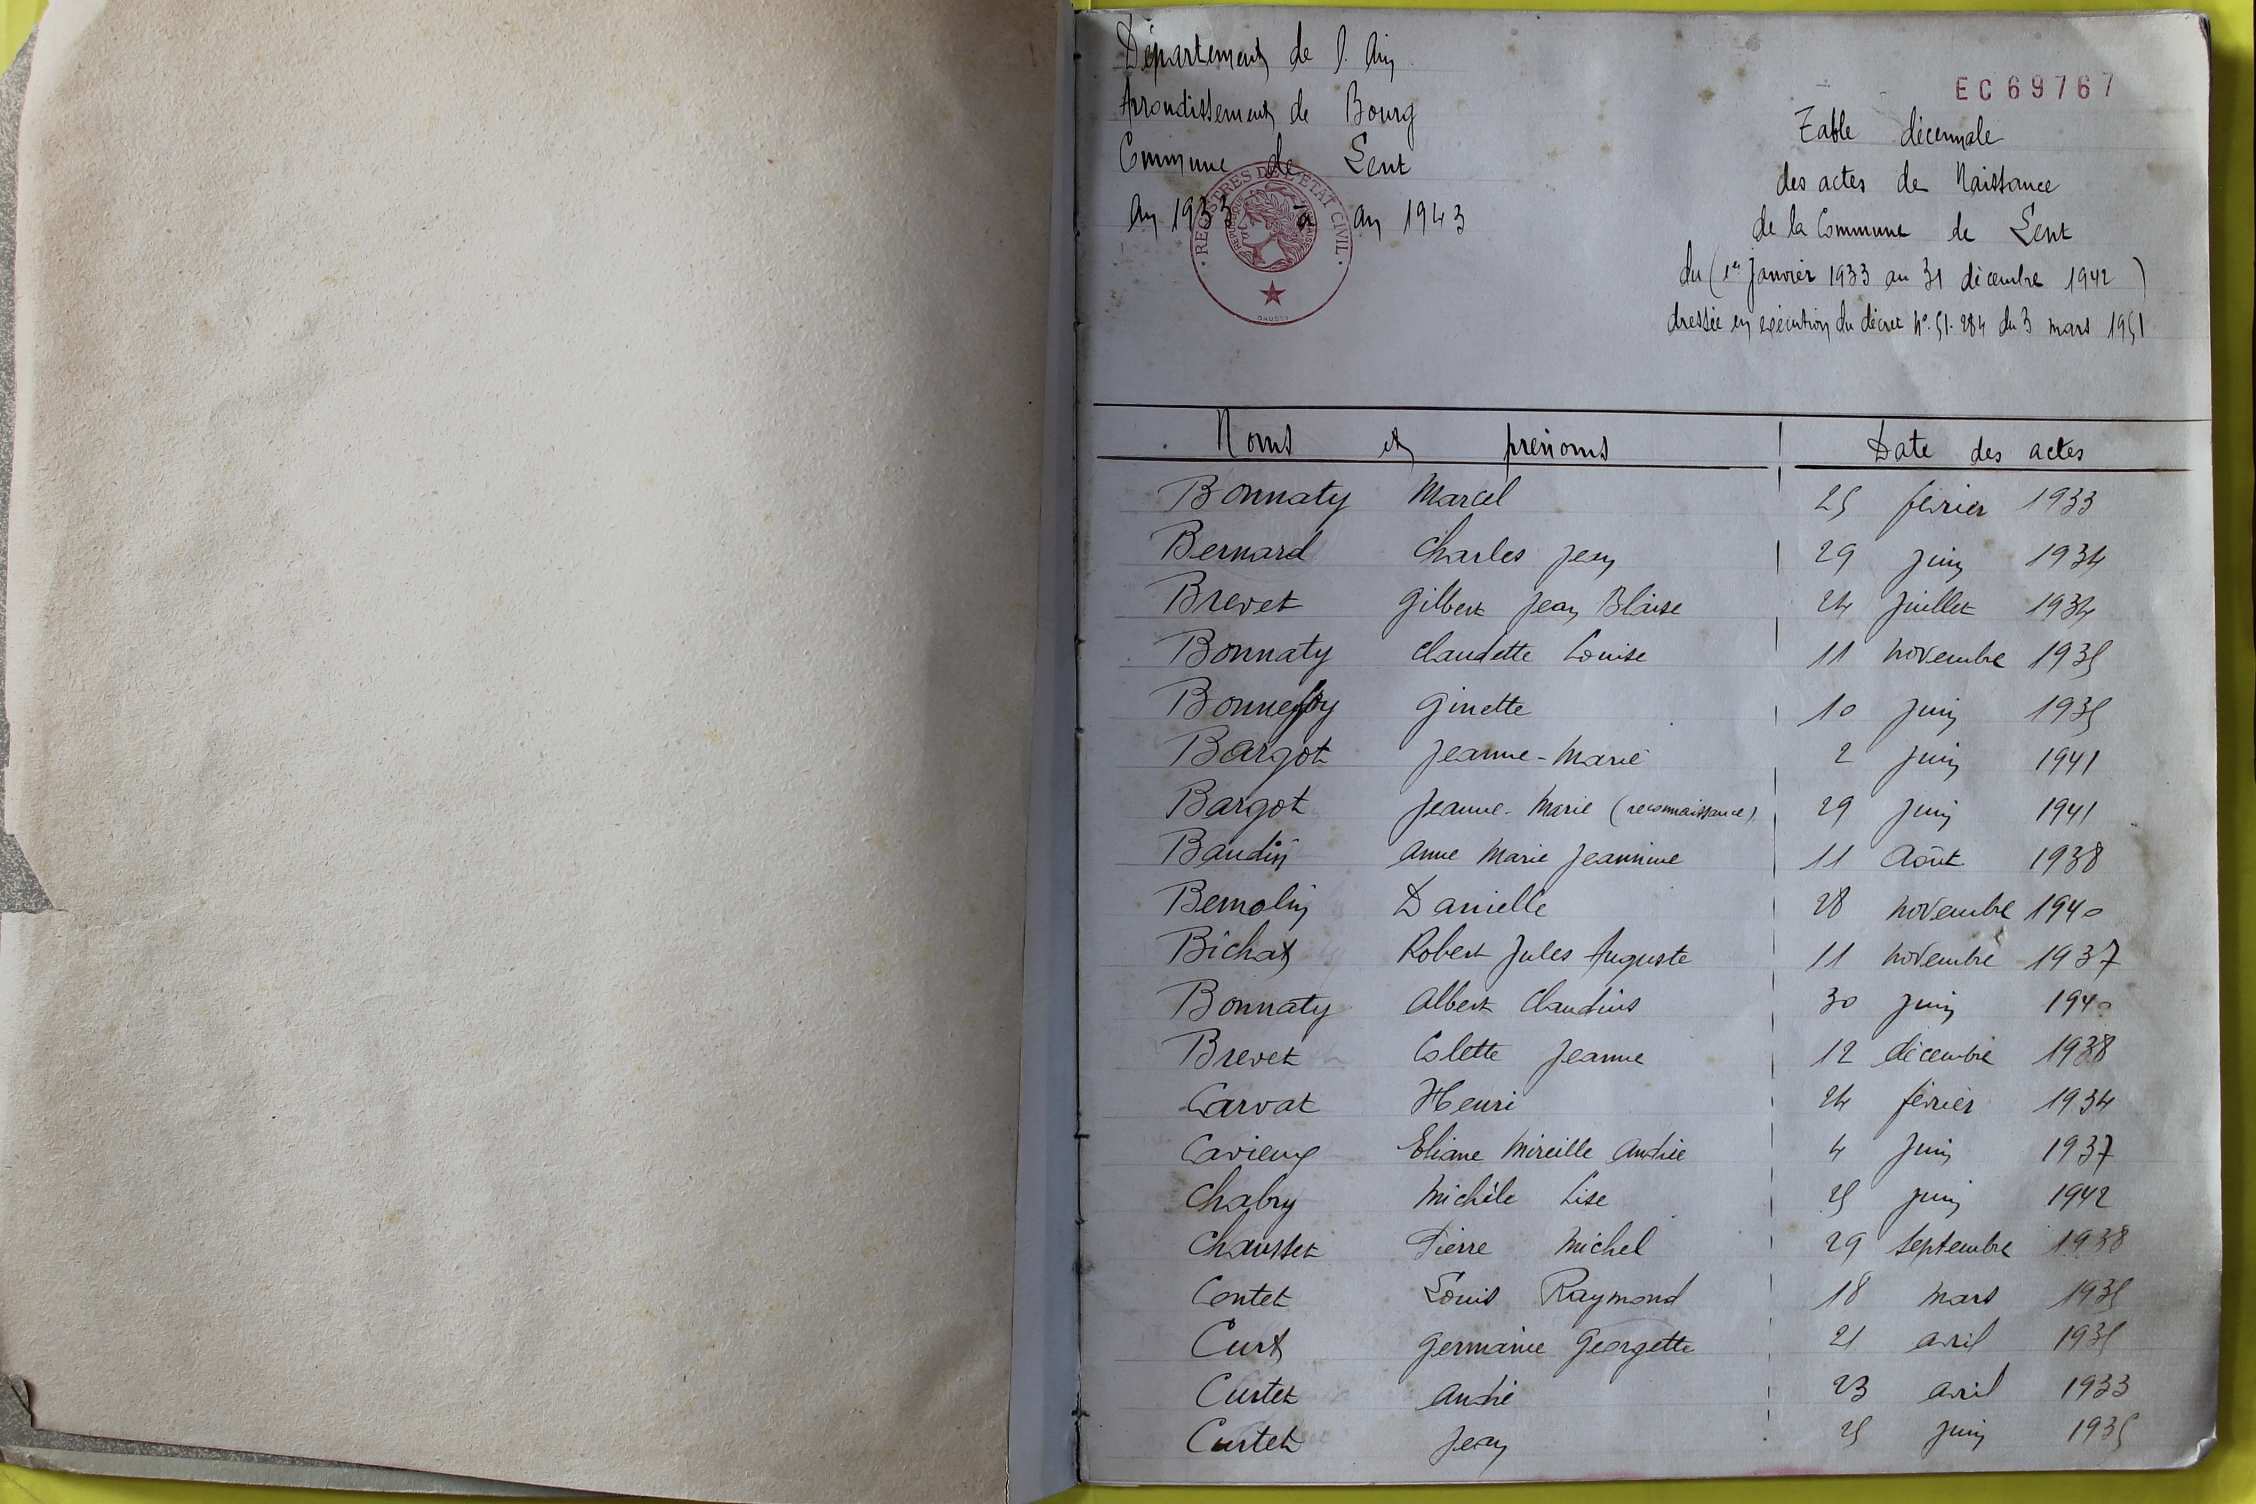 Département de l'Ain
Arrondissement de Bourg
Commune de Lent
An 1933 à an 1943
REGISTRES DE L'ETAT CIVIL
EC69767
Table décennale
des actes de Naissance
de la Commune de Lent
du (1er Janvier 1933 au 31 décembre 1942)
dressée en exécution du décret N° 51.284 du 3 mars 1951
Noms et prénoms Date des actes
Bonnaty Marcel 25 février 1933
Bernard Charles Jean 29 juin 1934
Brevet Gilbert Jean Blaise 24 juillet 1934
Bonnaty Claudette Louise 11 novembre 1935
Bonnefoy Ginette 10 juin 1935
Bargot Jeanne-Marie 2 juin 1941
Bargot Jeanne-Marie (reconnaissance) 29 juin 1941
Baudin Anne Marie Jeannine 11 Août 1938
Bemolin Danielle 28 novembre 1940
Bichat Robert Jules Auguste 11 novembre 1937
Bonnaty Albert Claudius 30 juin 1940
Brevet Colette Jeanne 12 décembre 1938
Carvat Henri 24 février 1934
Cavieux Eliane Mireille Andrée 4 juin 1937
Chabry Michèle Lise 25 juin 1942
Chausset Pierre Michel 29 septembre 1938
Contet Louis Raymond 18 mars 1935
Curt Germaine Georgette 21 avril 1935
Curtet André 23 avril 1933
Curtet Jean 25 juin 1935